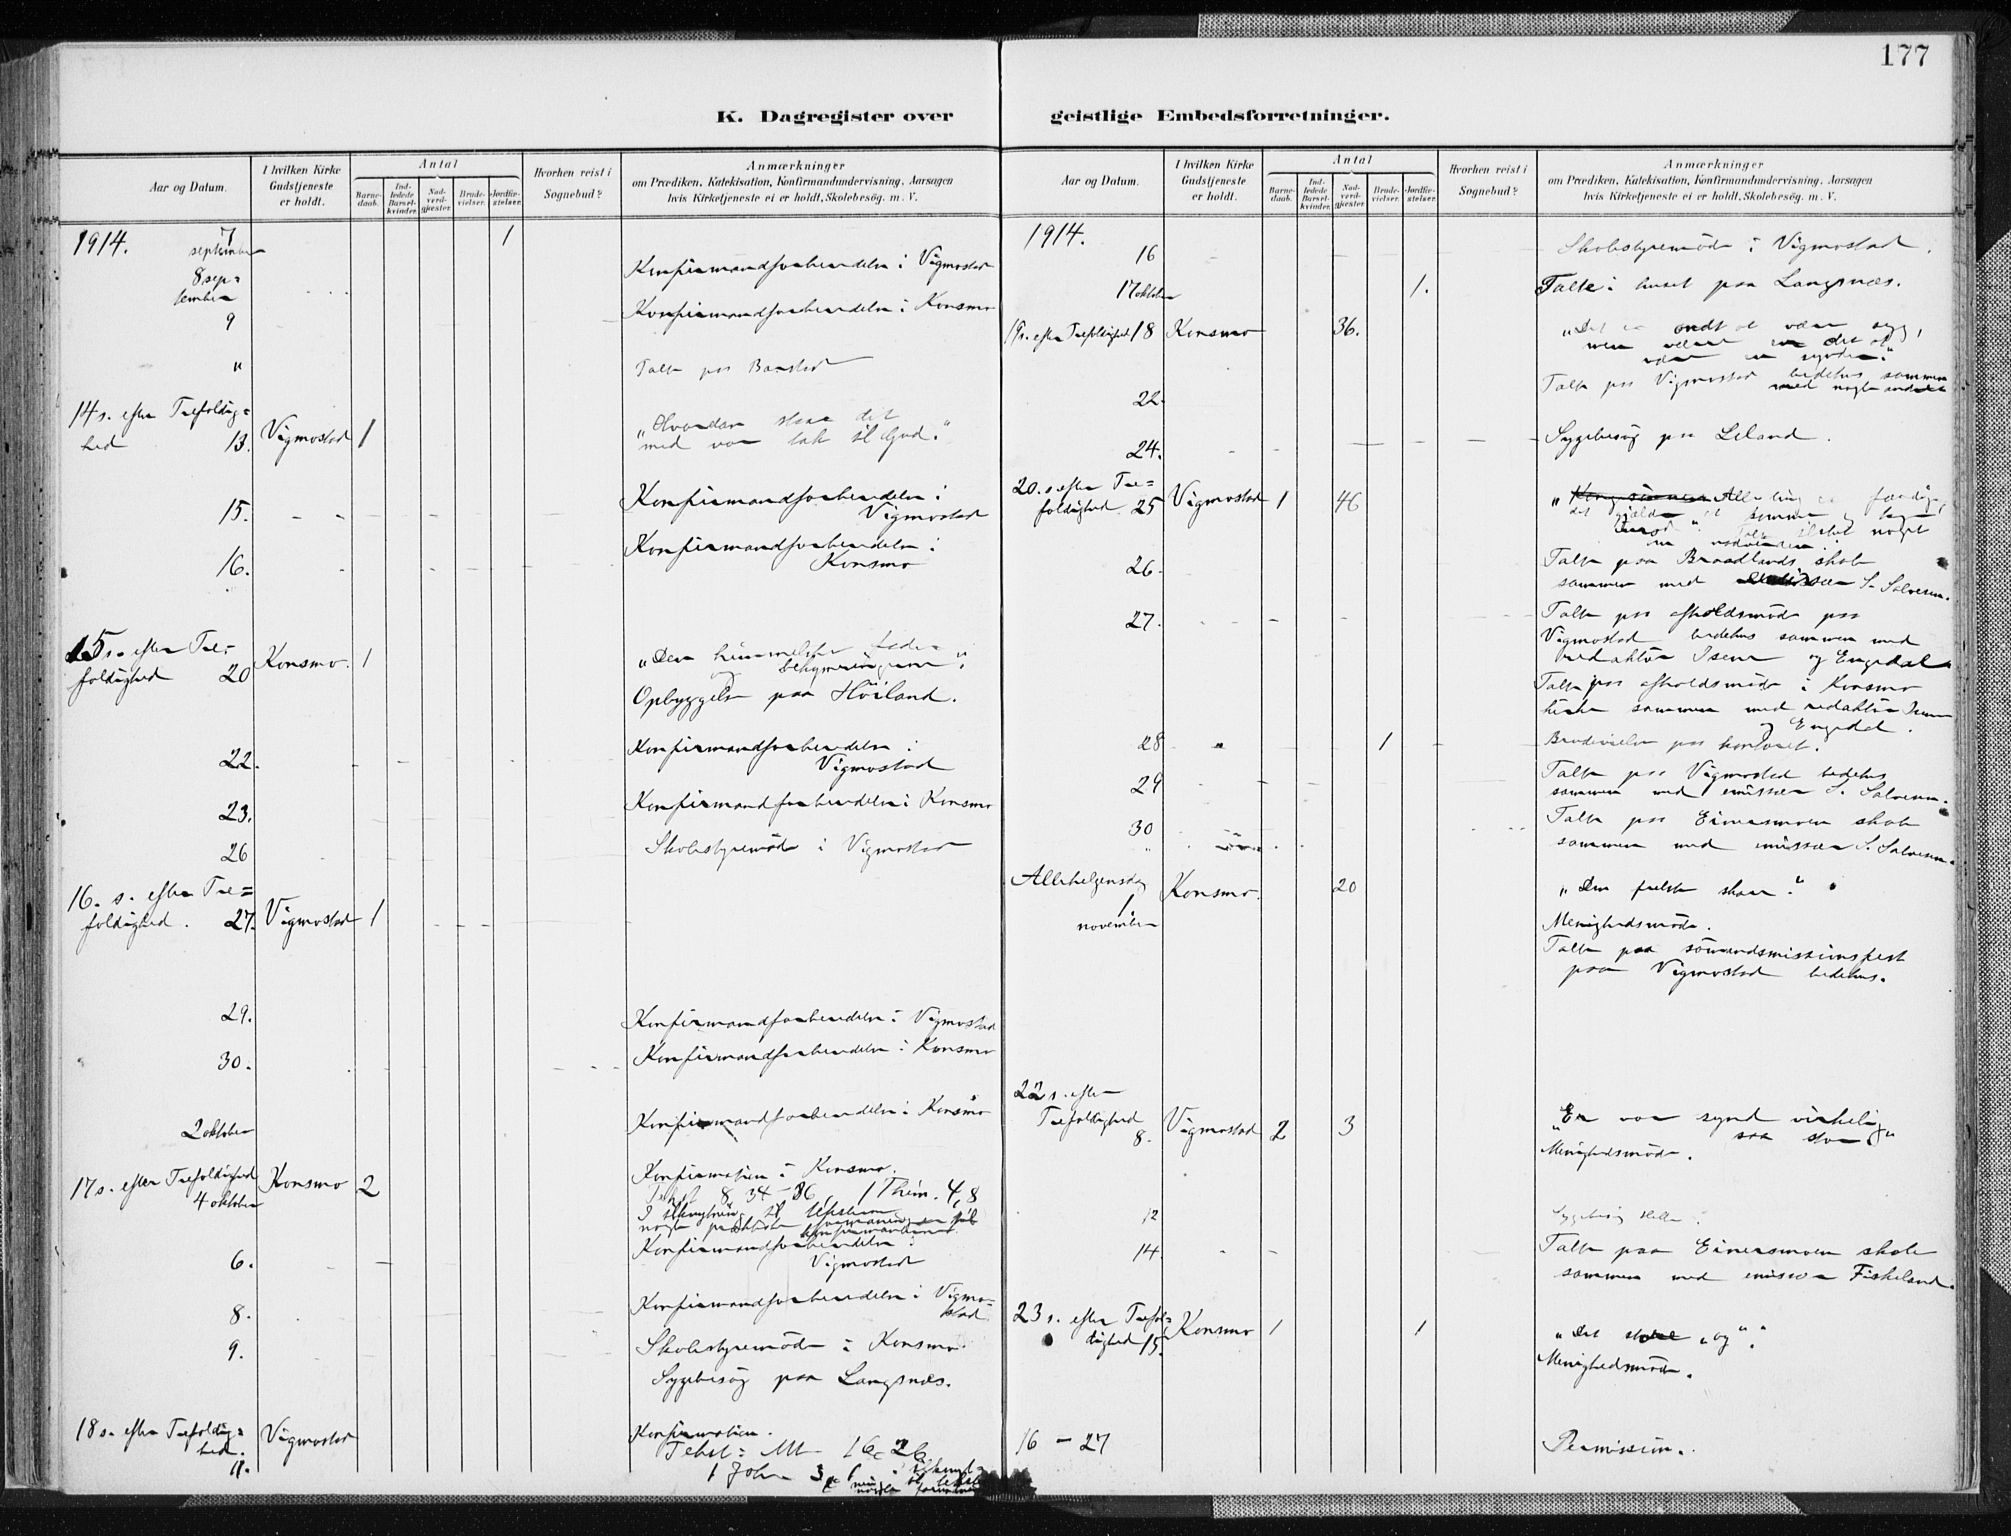 177
K. Dagregister over geistlige Embedsforretninger.
Aar og Datum.
I hvilken Kirke Gudstjeneste er holdt.
Antal
Barnedaab.
Indledede Barselkvinder.
Nadverdgjester.
Brudevielser.
Jordfæstelser.
Hvorhen reist i Sognebud?
Anmærkninger
om Prædiken, Katekisation, Konfirmandundervisning, Aarsagen
hvis Kirketjeneste ei er holdt, Skolebesøg. m. V.
1914. 7 september 1
8 september Konfirmandforberedelse i Vigmostad
9 Konfirmandforberedelse i Konsmo
" Talte paa
14 s. efter Trefoldighed 13. Vigmostad 1 "Hvordan staar det
med vor tak til Gud."
15. Konfirmandforberedelse i
Vigmostad
16. Konfirmandforberedelse i
Konsmo
15 s. efter Trefoldighed 20 Konsmo. 1 "Den himmelske fader
og bekymringerne".
Opbyggelse paa Höiland.
22. Konfirmandforberedelse i
Vigmostad
23. Konfirmandforberedelse i Konsmo
26 Skolestyremöde i Vigmostad
16. s. efter Trefoldighed. 27. Vigmostad 1
29. Konfirmandforberedelse i Vigmostad
30. Konfirmandforberedelse i Konsmo
2 oktober Konfirmandforberedelse i Konsmo
17 s. efter Trefoldighed 4 oktober Konsmo 2 Konfirmation i Konsmo.
Tekst 8, 34-36, 1 Thim. 4,8
I tilknytning til teksterne
nogle praktiske formaninger til
konfirmanterne.
6. Konfirmandforberedelse i
Vigmostad
8. Konfirmandforberedelse i Vigmostad
9. Skolestyremöde i Konsmo
Sygebesög paa Langsnæs.
18 s. efter Trefoldighed. 11. Vigmostad Konfirmation.
Tekst: Mt 16, 26
1 Joh
Aar og Datum.
I hvilken Kirke Gudstjeneste er holdt.
Antal
Barnedaab.
Indledede Barselkvinder.
Nadverdgjester.
Brudevielser.
Jordfæstelser.
Hvorhen reist i Sognebud?
Anmærkninger
om Prædiken, Katekisation, Konfirmandundervisning, Aarsagen
hvis Kirketjeneste ei er holdt, Skolebesög. m. V.
1914.
16 Skolestyremöde i Vigmostad.
17 oktober 1. Talte i huset paa Langsnæs.
19 s. efter Trefoldighed 18 Konsmo 36. "Det er ondt at være syg,
men værre er det at
være en synder."
22. Talte paa Vigmostad bedehus sammen
med nogle andre
24. Sygebesög paa Leland.
20. s. efter Trefoldighed 25 Vigmostad 1 46 "Alle ting er færdige,
det gjælder at komme
26. Talte paa Braadlands skole
sammen med S. Salvesen.
27. Talte paa afholdsmöde paa
Vigmostad bedehus sammen med
redaktör og Engedal
Talte paa afholdsmöde i Konsmo
kirke sammen med redaktör
og Engedal.
28 " 1 Brudevielse paa kontoret.
29 Talte paa Vigmostad bedehus
sammen med emissær S. Salvesen.
30 Talte paa Einersmoen skole
sammen med emissær S. Salvesen.
Allehelgensdag 1 november Konsmo. 20 "Den frelste skare."
Menighedsmöde.
Talte paa sömandsmissionsfest
paa Vigmostad bedehus.
22 s. efter Trefoldighed 8. Vigmostad 2 3 "Er vor synd virkelig
saa stor"
Menighedsmöde.
12 Sygebesög
14 Talte paa Einersmoen skole
sammen med emissær Fiskeland.
23 s. efter Trefoldighed 15. Konsmo 1 1 "Det "og"."
Menighedsmöde.
16 - 27 Permission.